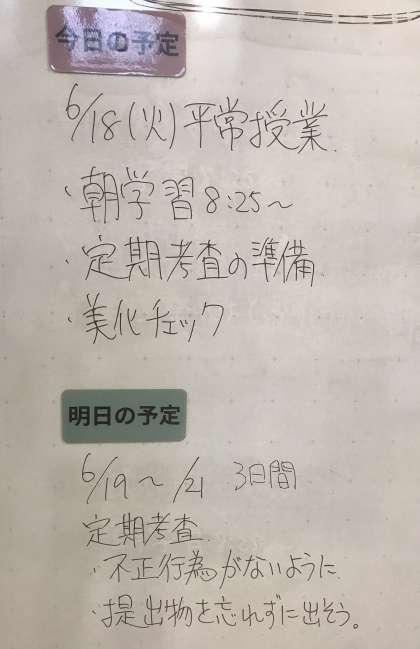 今日の予定
6/18(火)平常授業
・朝学習 8:25〜
・定期考査の準備
・美化チェック
明日の予定
6/19〜/21 3日間
定期考査
・不正行為がないように
・提出物を忘れずに出そう。